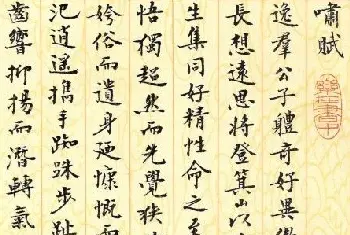 嘯賦
逸羣公子體奇好異傲
長想遠思將登箕山以
生集同好精性命之至
悟獨超然而先覺狹
姱俗而遺身廼慷慨而
汜逍遙攜手踟跦步趾
齒響抑揚而潛轉氣